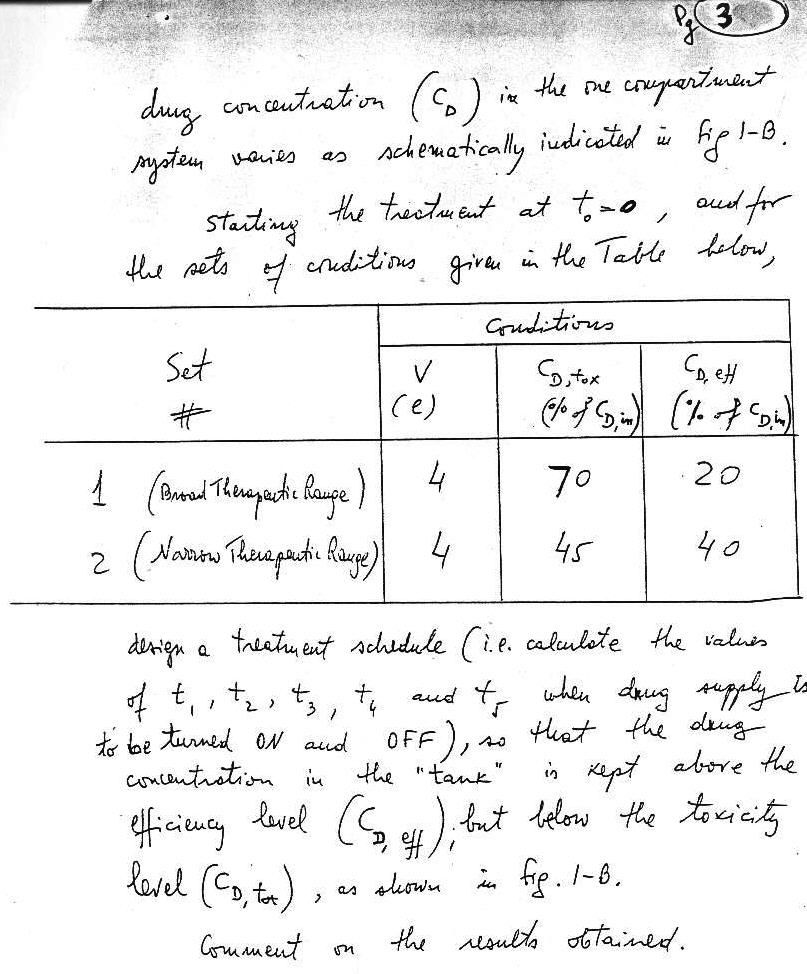 Pg 3
drug concentration (C_D) in the one compartment
system varies as schematically indicated in fig 1-B.
starting the treatment at t_0=0, and for
the sets of conditions given in the Table below,
Conditions
Set V C_D,tox C_D,eff
# (l) (% of C_D,in) (% of C_D,in)
1 (Broad Therapeutic Range) 4 70 20
2 (Narrow Therapeutic Range) 4 45 40
design a treatment schedule (i.e. calculate the values
of t_1, t_2, t_3, t_4 and t_5 when drug supply is
to be turned ON and OFF), so that the drug
concentration in the "tank" is kept above the
efficiency level (C_D,eff), but below the toxicity
level (C_D,tox), as shown in fig. 1-B.
Comment on the results obtained.